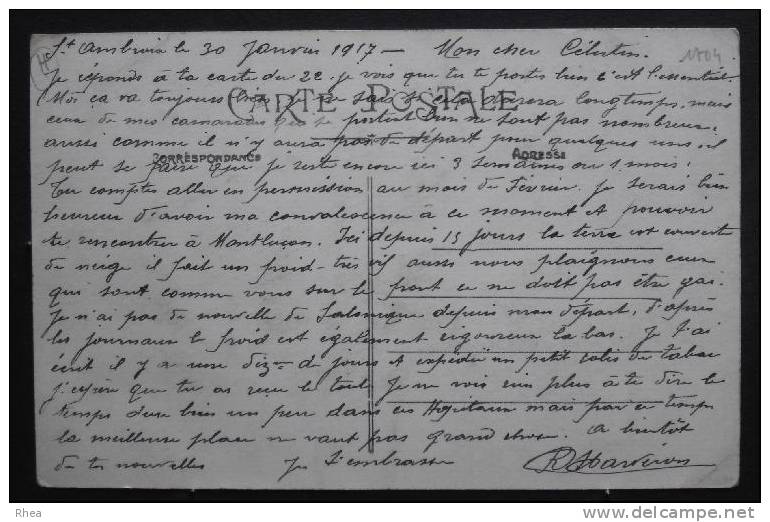 St Ambroix le 30 Janvier 1917 — Mon cher Célestin.
Je réponds à ta carte du 22. je vois que tu te portes bien c'est l'essentiel.
Moi ça va toujours bien je ne sais si cela durera longtemps, mais
CARTE POSTALE
ceux de mes camarades qui se portent bien ne sont pas nombreux
aussi comme il n'y aura pas de départ pour quelques uns il
peut se faire que je reste encore ici 3 semaines ou 1 mois!
CORRESPONDANCE
ADRESSE
Tu comptes aller en permission au mois de Février. Je serais bien
heureux d'avoir ma convalescence à ce moment et pouvoir
te rencontrer à Montluçon. Ici depuis 15 jours la terre est couverte
de neige il fait un froid très vif aussi nous plaignons ceux
qui sont comme vous sur le front ce ne doit pas être gai.
Je n'ai pas de nouvelle de Salonique depuis mon départ, d'après
les journaux le froid est également rigoureux la bas. Je t'ai
écrit il y a une dizne de jours et expédié un petit colis de tabac
j'espère que tu as reçu le tout. Je ne vois rien plus à te dire le
temps dure bien un peu dans ces Hopitaux mais par ce temps
la meilleure place ne vaut pas grand chose. A bientôt
de tes nouvelles Je t'embrasse
1804
Rhea
www.delcampe.net